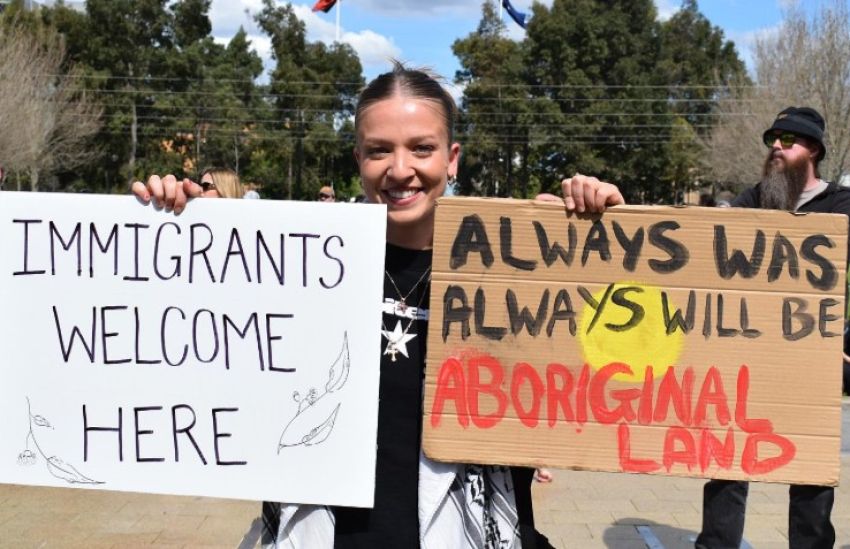 IMMIGRANTS
WELCOME
HERE
ALWAYS WAS
ALWAYS WILL BE
ABORIGINAL
LAND